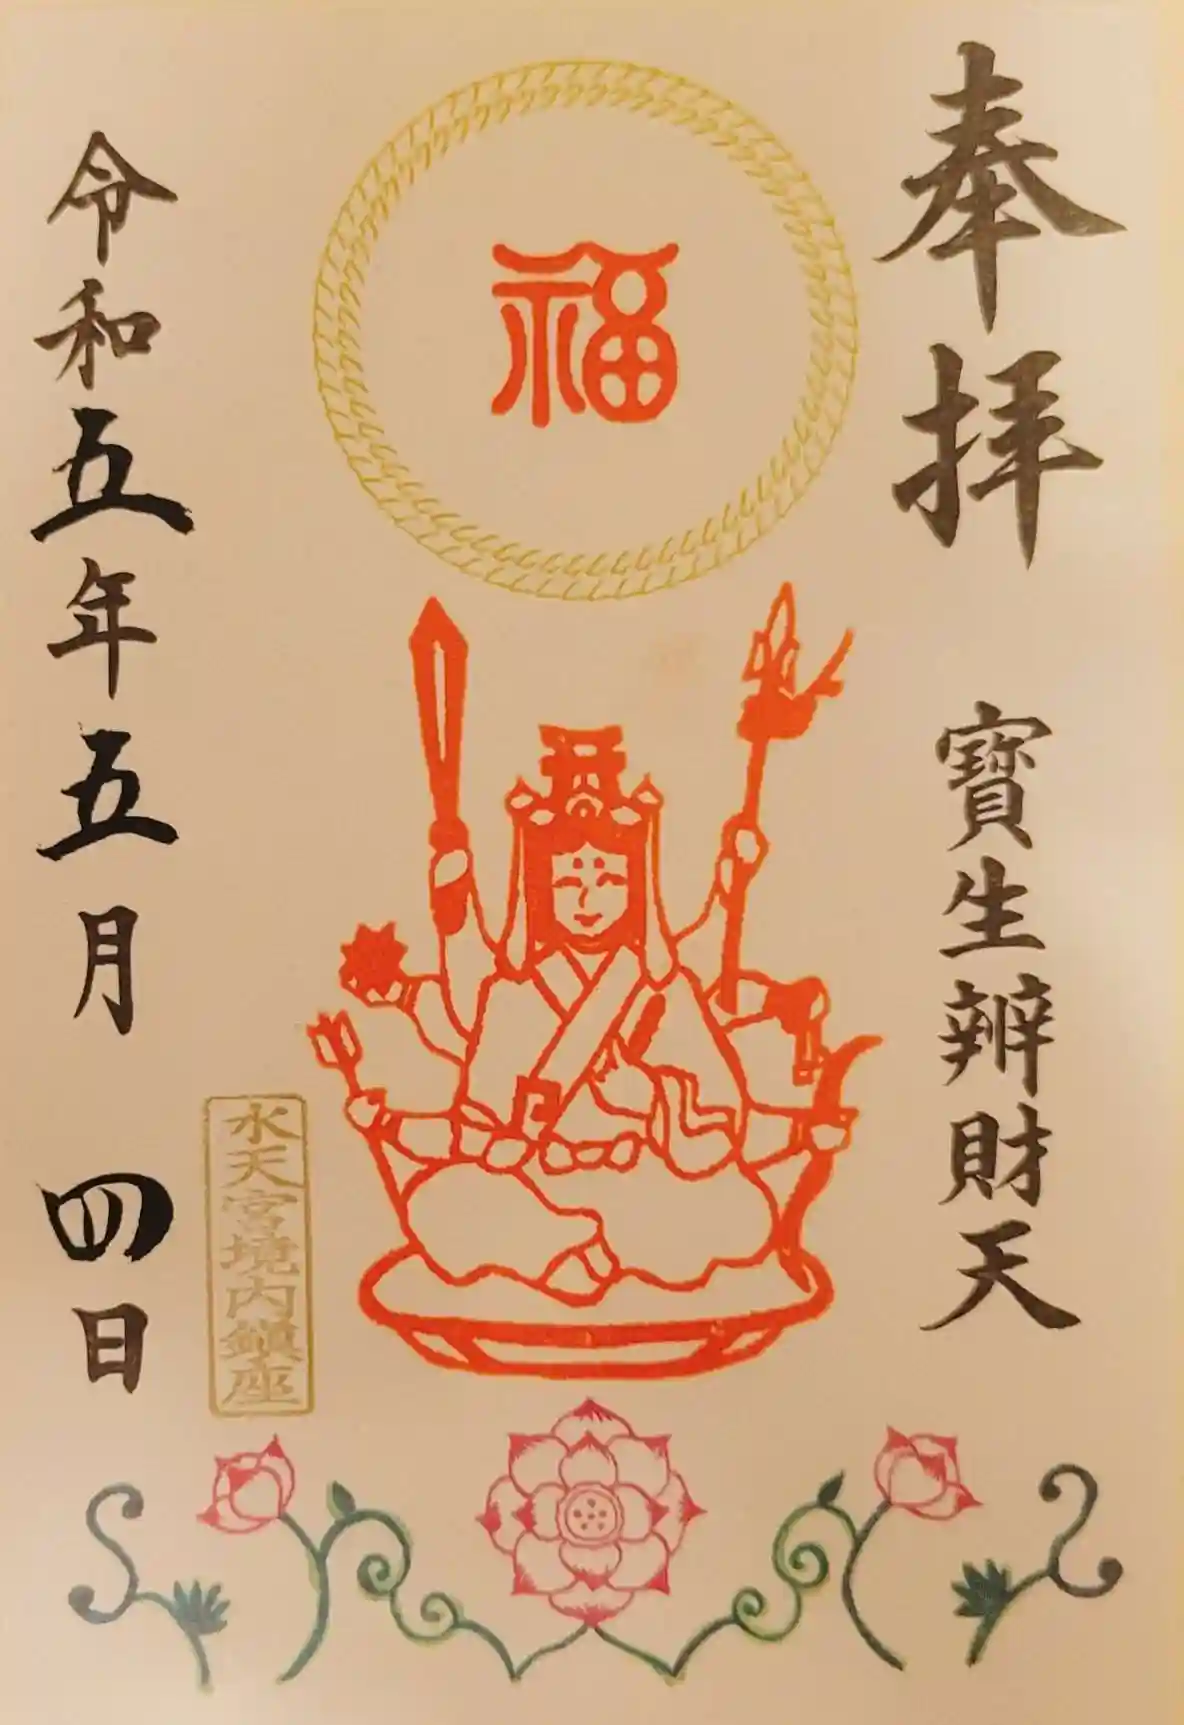 奉拝
寶生辨財天
福
水天宮境内鎮座
令和五年五月四日